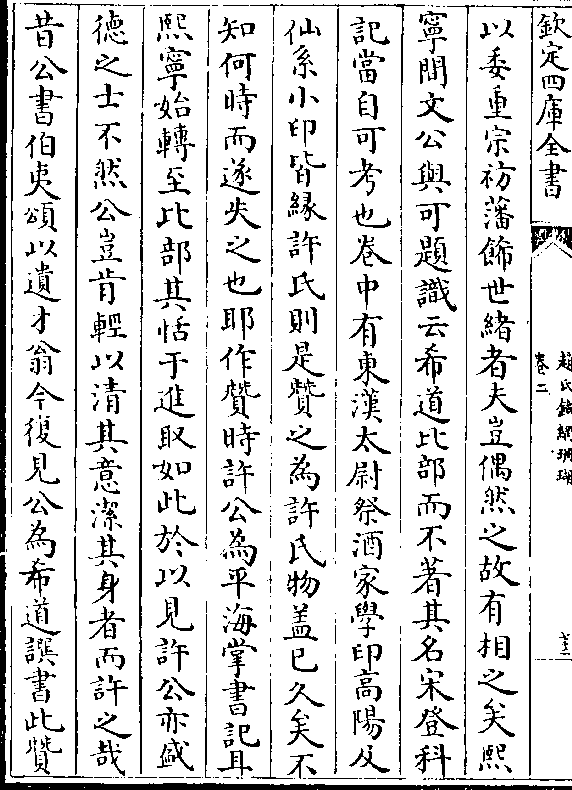 欽定四庫全書
趙氏鐵網珊瑚
卷二
以委重宗祊藩飾世緒者夫豈偶然之故有相之矣熙
寧間文公與可題識云希道比部而不著其名宋登科
記當自可考也卷中有東漢太尉祭酒家學印高陽及
仙系小印皆緣許氏則是贊之為許氏物蓋已久矣不
知何時而遂失之也耶作贊時許公為平海掌書記耳
熙寧始轉至比部其恬于進取如此於以見許公亦盛
德之士不然公豈肯輕以清其意潔其身者而許之哉
昔公書伯夷頌以遺才翁今復見公為希道譔書此贊